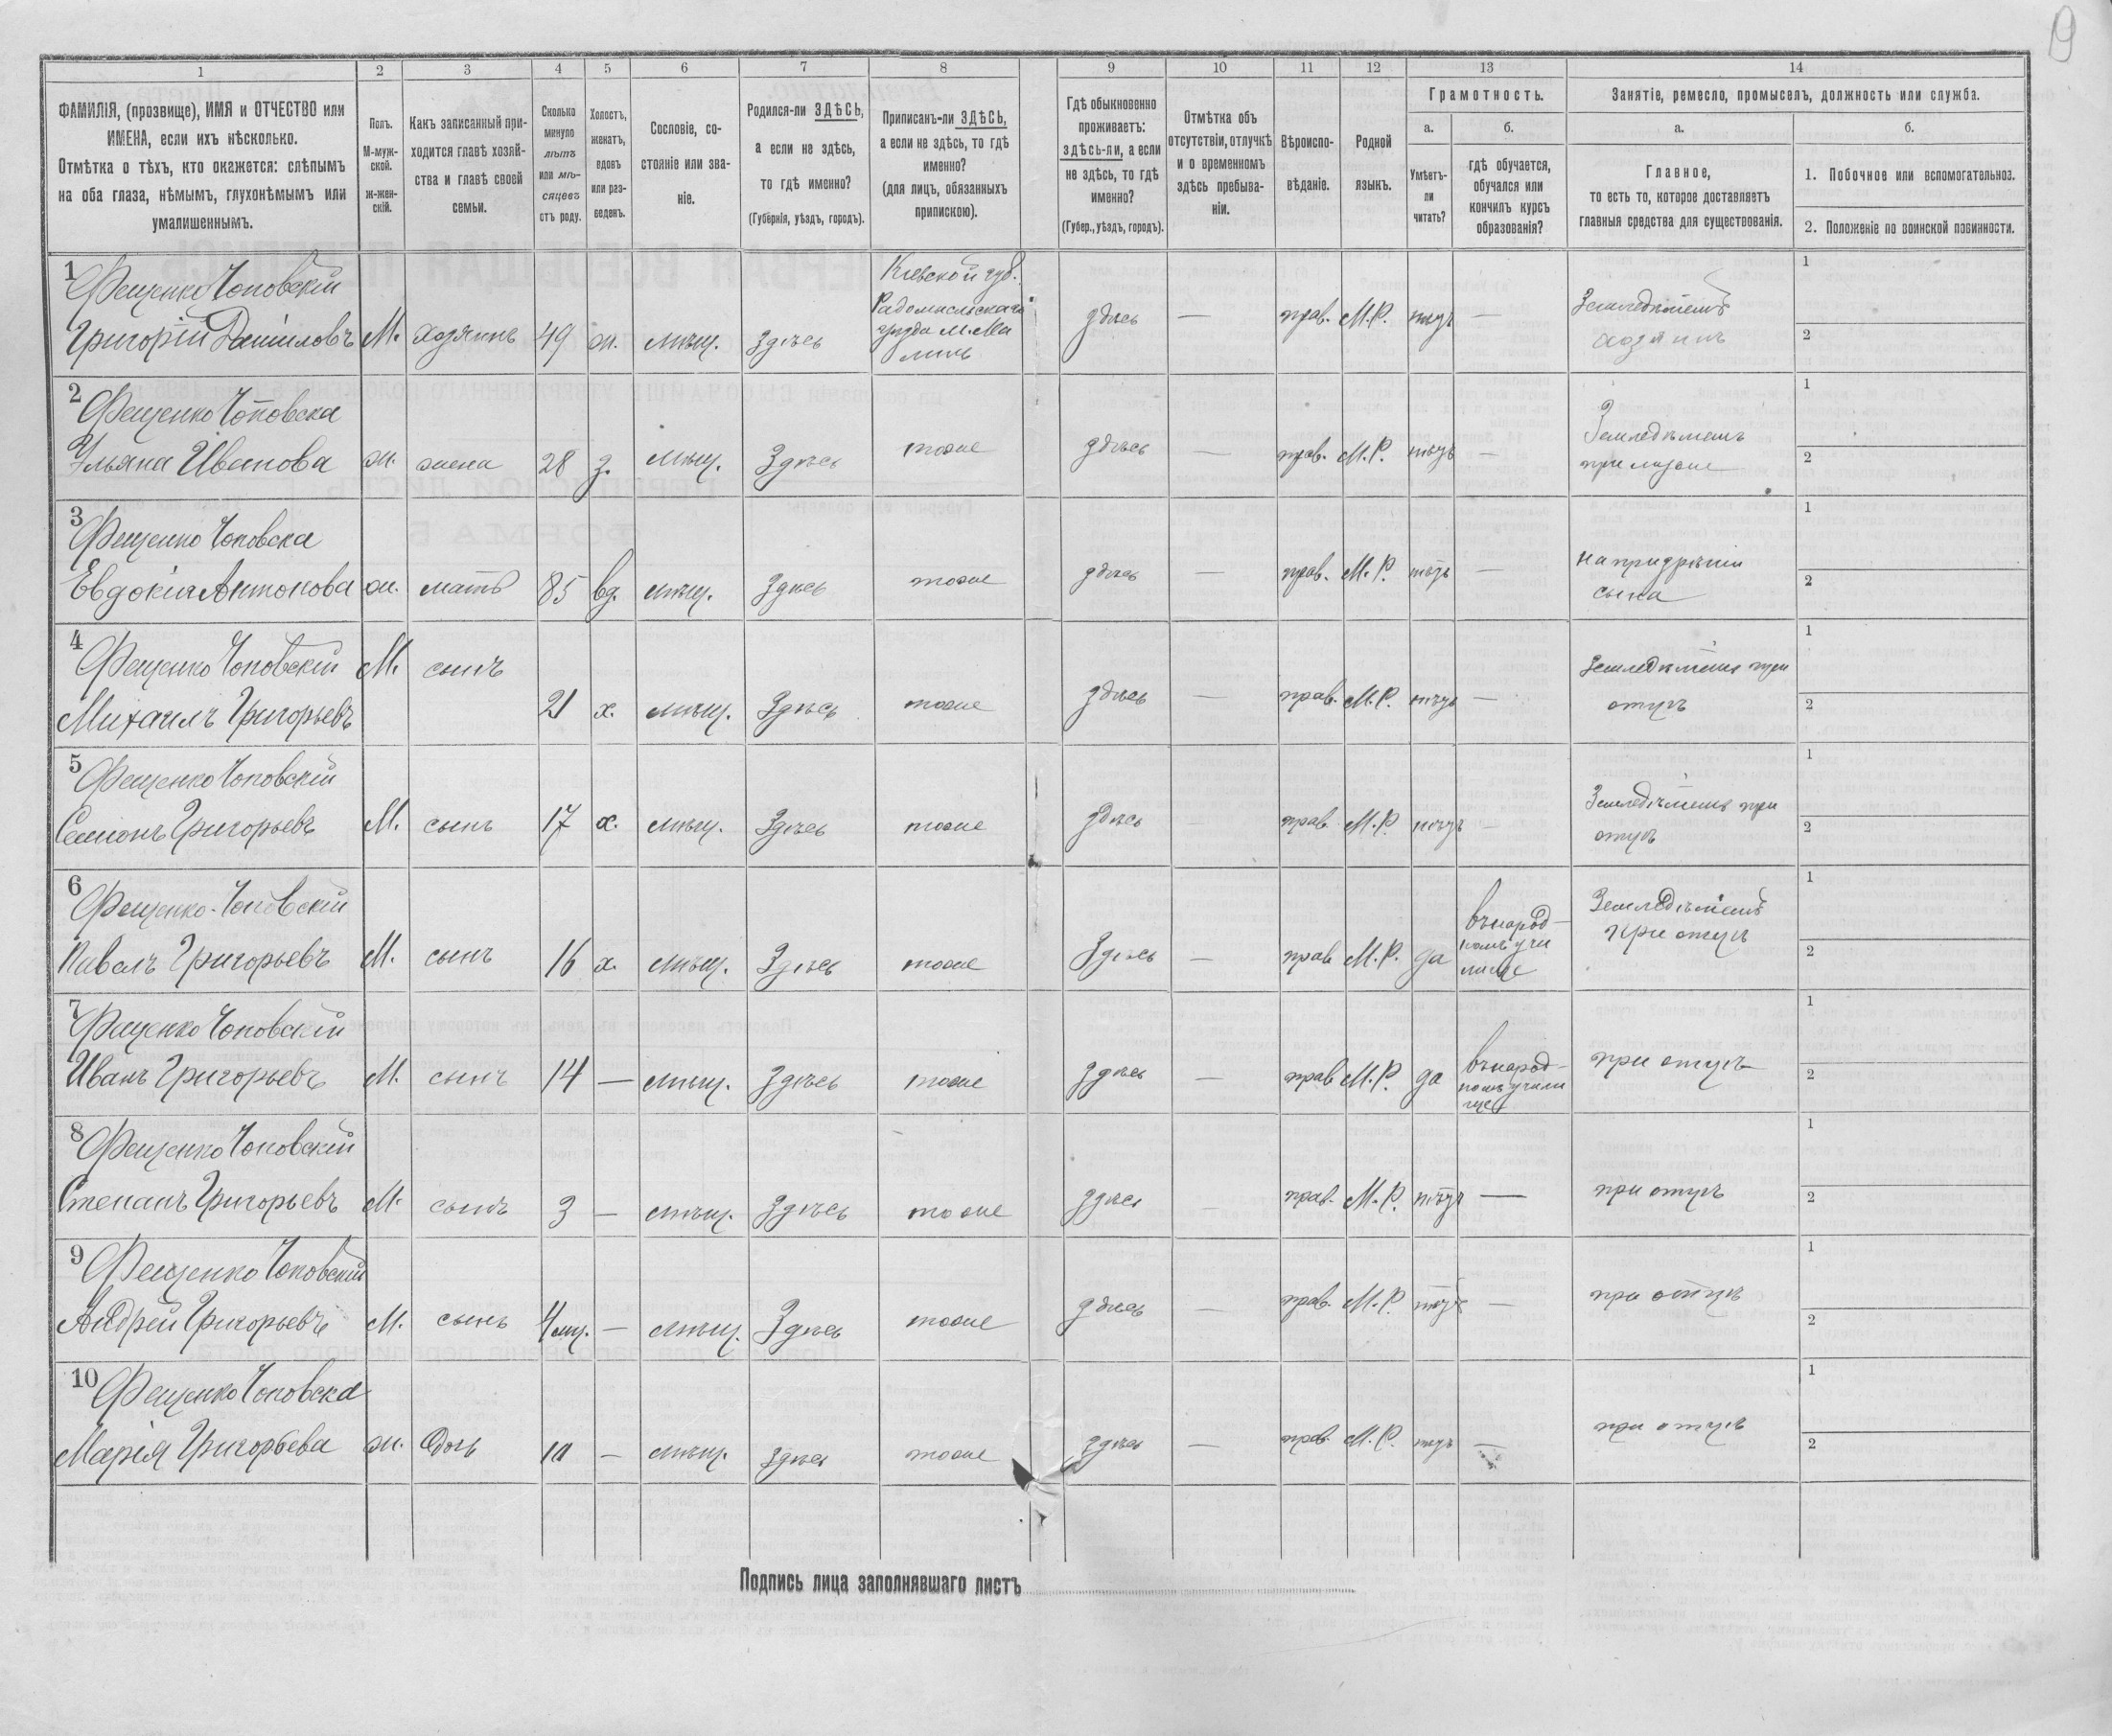 19
1 2 3 4 5 6 7 8 9 10 11 12 13 14
ФАМИЛІЯ, (прозвище), ИМЯ и ОТЧЕСТВО или
ИМЕНА, если ихъ нѣсколько.
Отмѣтка о тѣхъ, кто окажется: слѣпымъ
на оба глаза, нѣмымъ, глухонѣмымъ или
умалишеннымъ.
Полъ.
М-муж-
ской.
ж-жен-
скій.
Какъ записанный при-
ходится главѣ хозяй-
ства и главѣ своей
семьи.
Сколько
минуло
лѣтъ
или мѣ-
сяцевъ
отъ роду.
Холостъ,
женатъ,
вдовъ
или раз-
веденъ.
Сословіе, со-
стояніе или зва-
ніе.
Родился-ли ЗДѢСЬ,
а если не здѣсь,
то гдѣ именно?
(Губернія, уѣздъ, городъ).
Приписанъ-ли ЗДѢСЬ,
а если не здѣсь, то гдѣ
именно?
(для лицъ, обязанныхъ
припискою).
Гдѣ обыкновенно
проживаетъ:
здѣсь-ли, а если
не здѣсь, то гдѣ
именно?
(Губер., уѣздъ, городъ).
Отмѣтка объ
отсутствіи, отлучкѣ
и о временномъ
здѣсь пребыва-
ніи.
Вѣроиспо-
вѣданіе.
Родной
языкъ.
Грамотность.
а.
Умѣетъ-
ли
читать?
б.
гдѣ обучается,
обучался или
кончилъ курсъ
образованія?
Занятіе, ремесло, промыселъ, должность или служба.
а.
Главное,
то есть то, которое доставляетъ
главныя средства для существованія.
б.
1. Побочное или вспомогательноз.
2. Положеніе по воинской повинности.
1 Фещенко Чоповскій
Григорій Даниловъ М. хозяинъ 49 ж. мѣщ. Здѣсь
Кіевской губ.
Радомысльскаго
уѣзда м. Ма
линъ
здѣсь — прав. М.Р. нѣтъ —
Земледѣлецъ
хозяинъ
1
2
2 Фещенко Чоповска
Ульяна Иванова ж. жена 28 з. мѣщ. Здѣсь тоже здѣсь — прав. М.Р. нѣтъ —
Земледѣлецъ
при мужѣ
1
2
3 Фещенко Чоповска
Евдокія Антонова ж. мать 85 вд. мѣщ. Здѣсь тоже здѣсь — прав. М.Р. нѣтъ —
сына
1
2
4 Фещенко Чоповскій М. сынъ
Михаилъ Григорьевъ 21 х. мѣщ. Здѣсь тоже здѣсь — прав. М.Р. нѣтъ —
Земледѣлецъ при
отцѣ
1
2
5 Фещенко Чоповскій
Семіонъ Григорьевъ М. сынъ 17 х. мѣщ. Здѣсь тоже здѣсь — прав. М.Р. нѣтъ —
Земледѣлецъ при
отцѣ
1
2
6 Фещенко-Чоповскій
Павелъ Григорьевъ М. сынъ 16 х. мѣщ. Здѣсь тоже Здѣсь — прав. М.Р. да
въ народ-
номъ учи
лище
Земледѣлецъ
при отцѣ
1
2
7 Фещенко Чоповскій
Иванъ Григорьевъ М. сынъ 14 — мѣщ. Здѣсь тоже здѣсь — прав. М.Р. да
въ народ-
номъ учили
ще
при отцѣ
1
2
8 Фещенко Чоповскій
Степанъ Григорьевъ М. сынъ 3 — мѣщ. Здѣсь тоже здѣсь — прав. М.Р. нѣтъ —
при отцѣ
1
2
9 Фещенко Чоповскій
Андрей Григорьевъ М. сынъ 4 мц. — мѣщ. Здѣсь тоже здѣсь — прав. М.Р. нѣтъ —
при отцѣ
1
2
10 Фещенко Чоповска
Марія Григорьева ж. дочь — мѣщ. здѣсь тоже здѣсь — прав. М.Р. нѣтъ —
при отцѣ
1
2
Подпись лица заполнявшаго листъ